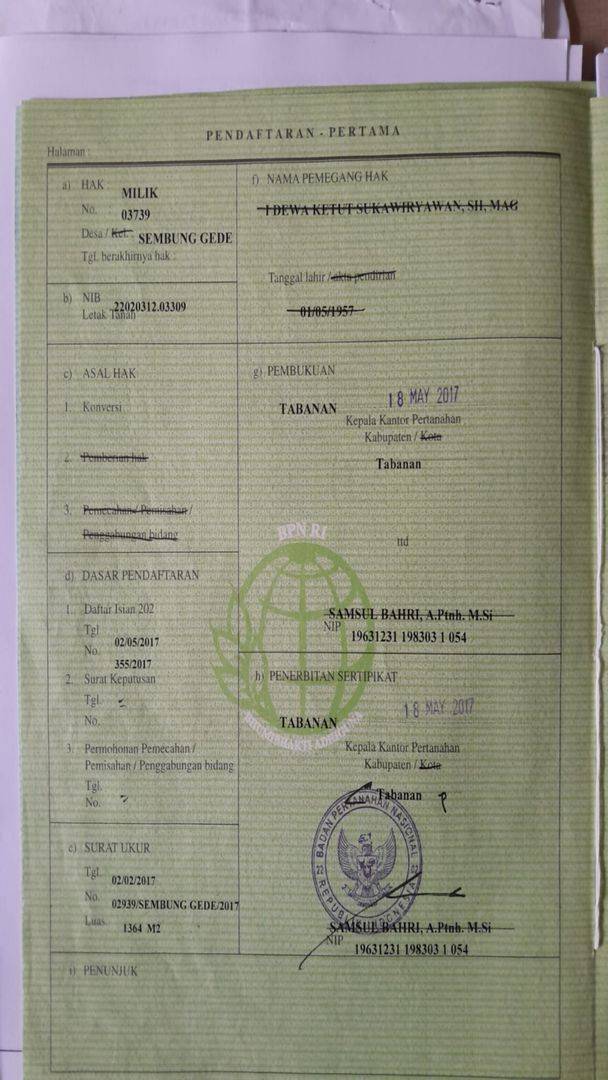 PENDAFTARAN - PERTAMA
Halaman :
a) HAK MILIK
No. 03739
Desa / Kel. : SEMBUNG GEDE
Tgl. berakhirnya hak :
b) NIB 22020312.03309
Letak Tanah
c) ASAL HAK
1. Konversi
2. Pemberian hak
3. Pemecahan / Pemisahan /
Penggabungan bidang
d) DASAR PENDAFTARAN
1. Daftar Isian 202
Tgl 02/05/2017
No. 355/2017
2. Surat Keputusan
Tgl. -
No.
3. Permohonan Pemecahan /
Pemisahan / Penggabungan bidang
Tgl.
No. -
e) SURAT UKUR
Tgl. 02/02/2017
No. 02939/SEMBUNG GEDE/2017
Luas 1364 M2
f) NAMA PEMEGANG HAK
I DEWA KETUT SUKAWIRYAWAN, SH, MAG
Tanggal lahir / akta pendirian
01/05/1957
g) PEMBUKUAN
TABANAN 18 MAY 2017
Kepala Kantor Pertanahan
Kabupaten / Kota
Tabanan
ttd
BPN RI
SAMSUL BAHRI, A.Ptnh. M.Si
NIP 19631231 198303 1 054
h) PENERBITAN SERTIPIKAT
TABANAN 18 MAY 2017
Kepala Kantor Pertanahan
Kabupaten / Kota
Tabanan
BADAN PERTANAHAN NASIONAL
REPUBLIK INDONESIA
SAMSUL BAHRI, A.Ptnh. M.Si
NIP 19631231 198303 1 054
i) PENUNJUK